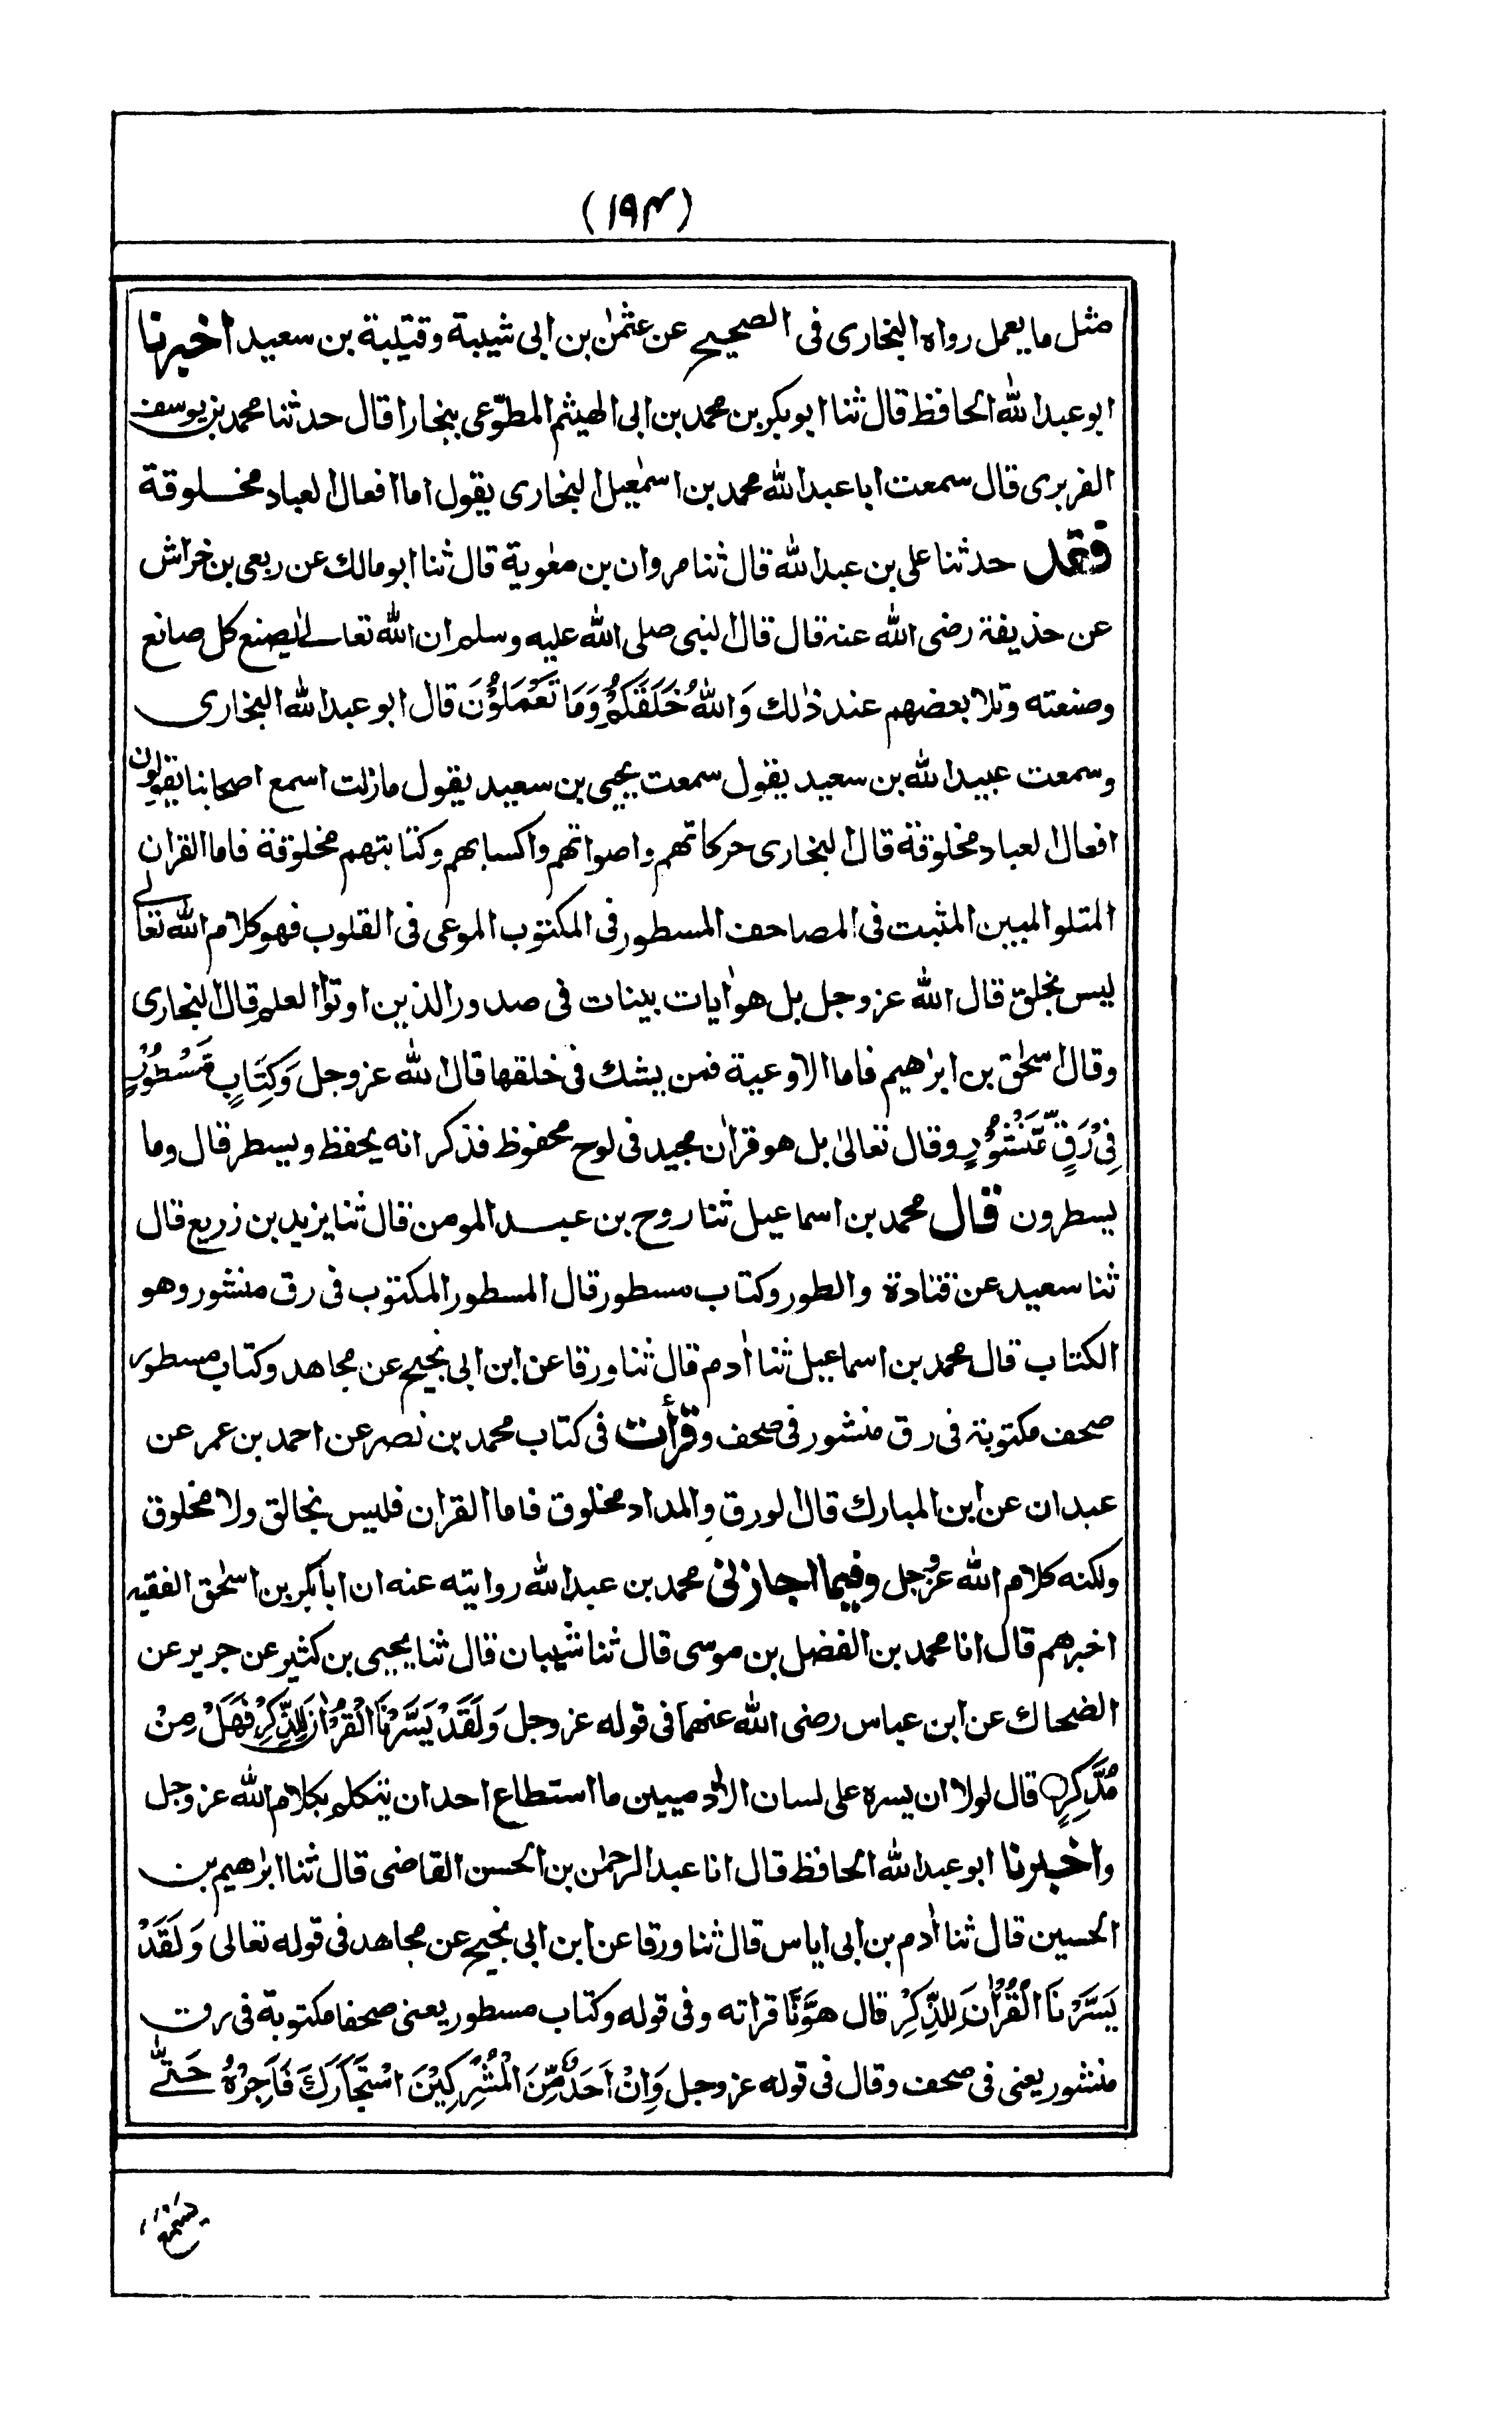 (١٩٤)
مثل ما يعمل رواه البخارى فى الصحيح عن عثمٰن بن ابى شيبة وقتيبة بن سعيد اخبرنا
ابو عبد الله الحافظ قال ثنا ابو بكر بن محمد بن ابى الهيثم المطوّعى ببخارا قال حدثنا محمد بن يوسف
الفربرى قال سمعت ابا عبد الله محمد بن اسمٰعيل البخارى يقول اما افعال العباد مخلوقة
فقد حدثنا على بن عبد الله قال ثنا مروان بن معٰوية قال ثنا ابو مالك عن ربعى بن خراش
عن حذيفة رضى الله عنه قال قال النبى صلى الله عليه وسلم ان الله تعالى يصنع كل صانع
وصنعته وتلا بعضهم عند ذٰلك وَاللهُ خَلَقَكُمْ وَمَا تَعْمَلُوْنَ قال ابو عبد الله البخارى
وسمعت عبيد الله بن سعيد يقول سمعت يحيى بن سعيد يقول ما زلت اسمع اصحابنا يقولون
افعال العباد مخلوقة قال البخارى حركاتهم واصواتهم واكسابهم وكتابتهم مخلوقة فاما القران
المتلو المبين المثبت فى المصاحف المسطور فى المكتوب الموعى فى القلوب فهو كلام الله تعالى
ليس بخلق قال الله عز وجل بل هو اٰيات بينات فى صدور الذين اوتوا العلم قال البخارى
وقال اسحٰق بن ابرٰهيم فاما الاوعية فمن يشك فى خلقها قال الله عز وجل وَكِتَابٍ مَّسْطُوْرٍ
فِىْ رَقٍّ مَّنْشُوْرٍ وقال تعالىٰ بل هو قراٰن مجيد فى لوح محفوظ فذكر انه يحفظ ويسطر قال وما
يسطرون قال محمد بن اسماعيل ثنا روح بن عبد المومن قال ثنا يزيد بن زريع قال
ثنا سعيد عن قتادة والطور وكتاب مسطور قال المسطور المكتوب فى رق منشور وهو
الكتاب قال محمد بن اسماعيل ثنا اٰدم قال ثنا ورقا عن ابن ابى نجيح عن مجاهد وكتاب مسطور
صحف مكتوبة فى رق منشور فى صحف وقرأت فى كتاب محمد بن نصر عن احمد بن عمر عن
عبدان عن ابن المبارك قال الورق والمداد مخلوق فاما القران فليس بخالق ولا مخلوق
ولكنه كلام الله عز وجل وفيما اجاز لى محمد بن عبد الله روايته عنه ان ابا بكر بن اسحٰق الفقيه
اخبرهم قال انا محمد بن الفضل بن موسى قال ثنا شيبان قال ثنا يحيى بن كثير عن جرير عن
الضحاك عن ابن عباس رضى الله عنهما فى قوله عز وجل وَلَقَدْ يَسَّرْنَا الْقُرْاٰنَ لِلذِّكْرِ فَهَلْ مِنْ
مُّدَّكِرٍ قال لولا ان يسره على لسان الاٰدميين ما استطاع احد ان يتكلم بكلام الله عز وجل
واخبرنا ابو عبد الله الحافظ قال انا عبد الرحمٰن بن الحسن القاضى قال ثنا ابرٰهيم بن
الحسين قال ثنا اٰدم بن ابى اياس قال ثنا ورقا عن ابن ابى نجيح عن مجاهد فى قوله تعالى وَلَقَدْ
يَسَّرْنَا الْقُرْاٰنَ لِلذِّكْرِ قال هَوَّنَّا قراته وفى قوله وكتاب مسطور يعنى صحفا مكتوبة فى رق
منشور يعنى فى صحف وقال فى قوله عز وجل وَاِنْ اَحَدٌ مِّنَ الْمُشْرِكِيْنَ اسْتَجَارَكَ فَاَجِرْهُ حَتّٰى